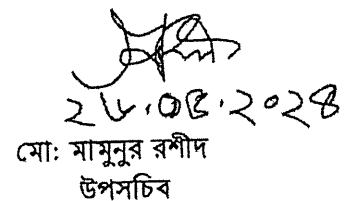 ২৮.০৫.২০২৪
মো: মামুনুর রশীদ
উপসচিব